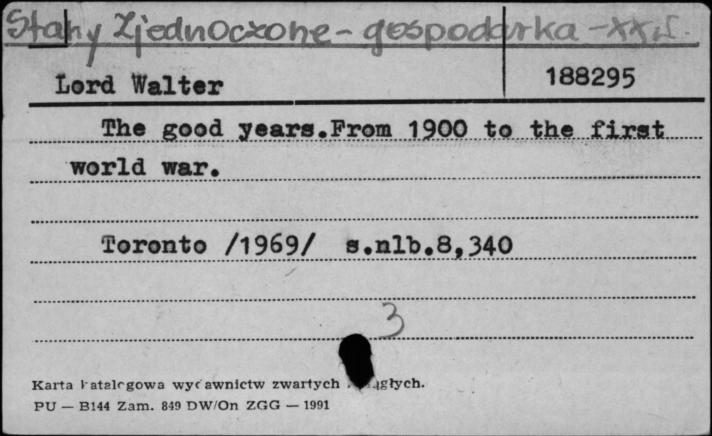 Stany Zjednoczone - gospodarka - XX w.
Lord Walter 188295
The good years.From 1900 to the first
world war.
Toronto /1969/ s.nlb.8,340
3
Karta katalogowa wydawnictw zwartych ciągłych.
PU — B144 Zam. 849 DW/On ZGG — 1991